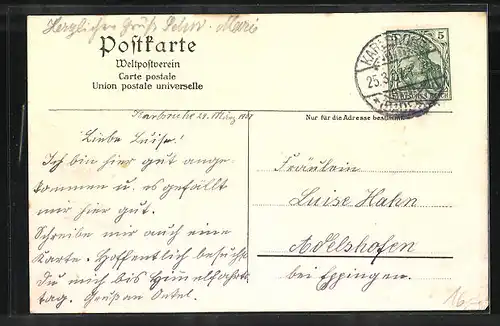 Herzlichen Gruß Marie
Postkarte
Weltpostverein
Carte postale
Union postale universelle
5
25.3.
Karlsruhe 25. März
Nur für die Adresse bestimmt
Liebe Luise!
Ich bin hier gut ange-
kommen u. es gefällt
mir hier gut.
Schreibe mir auch eine
Karte. Hoffentlich besuchst
Du mich bis Himmelfahrts
tag. Gruß an Onkel.
Fräulein
Luise Hahn
Adelshofen
bei Eppingen.